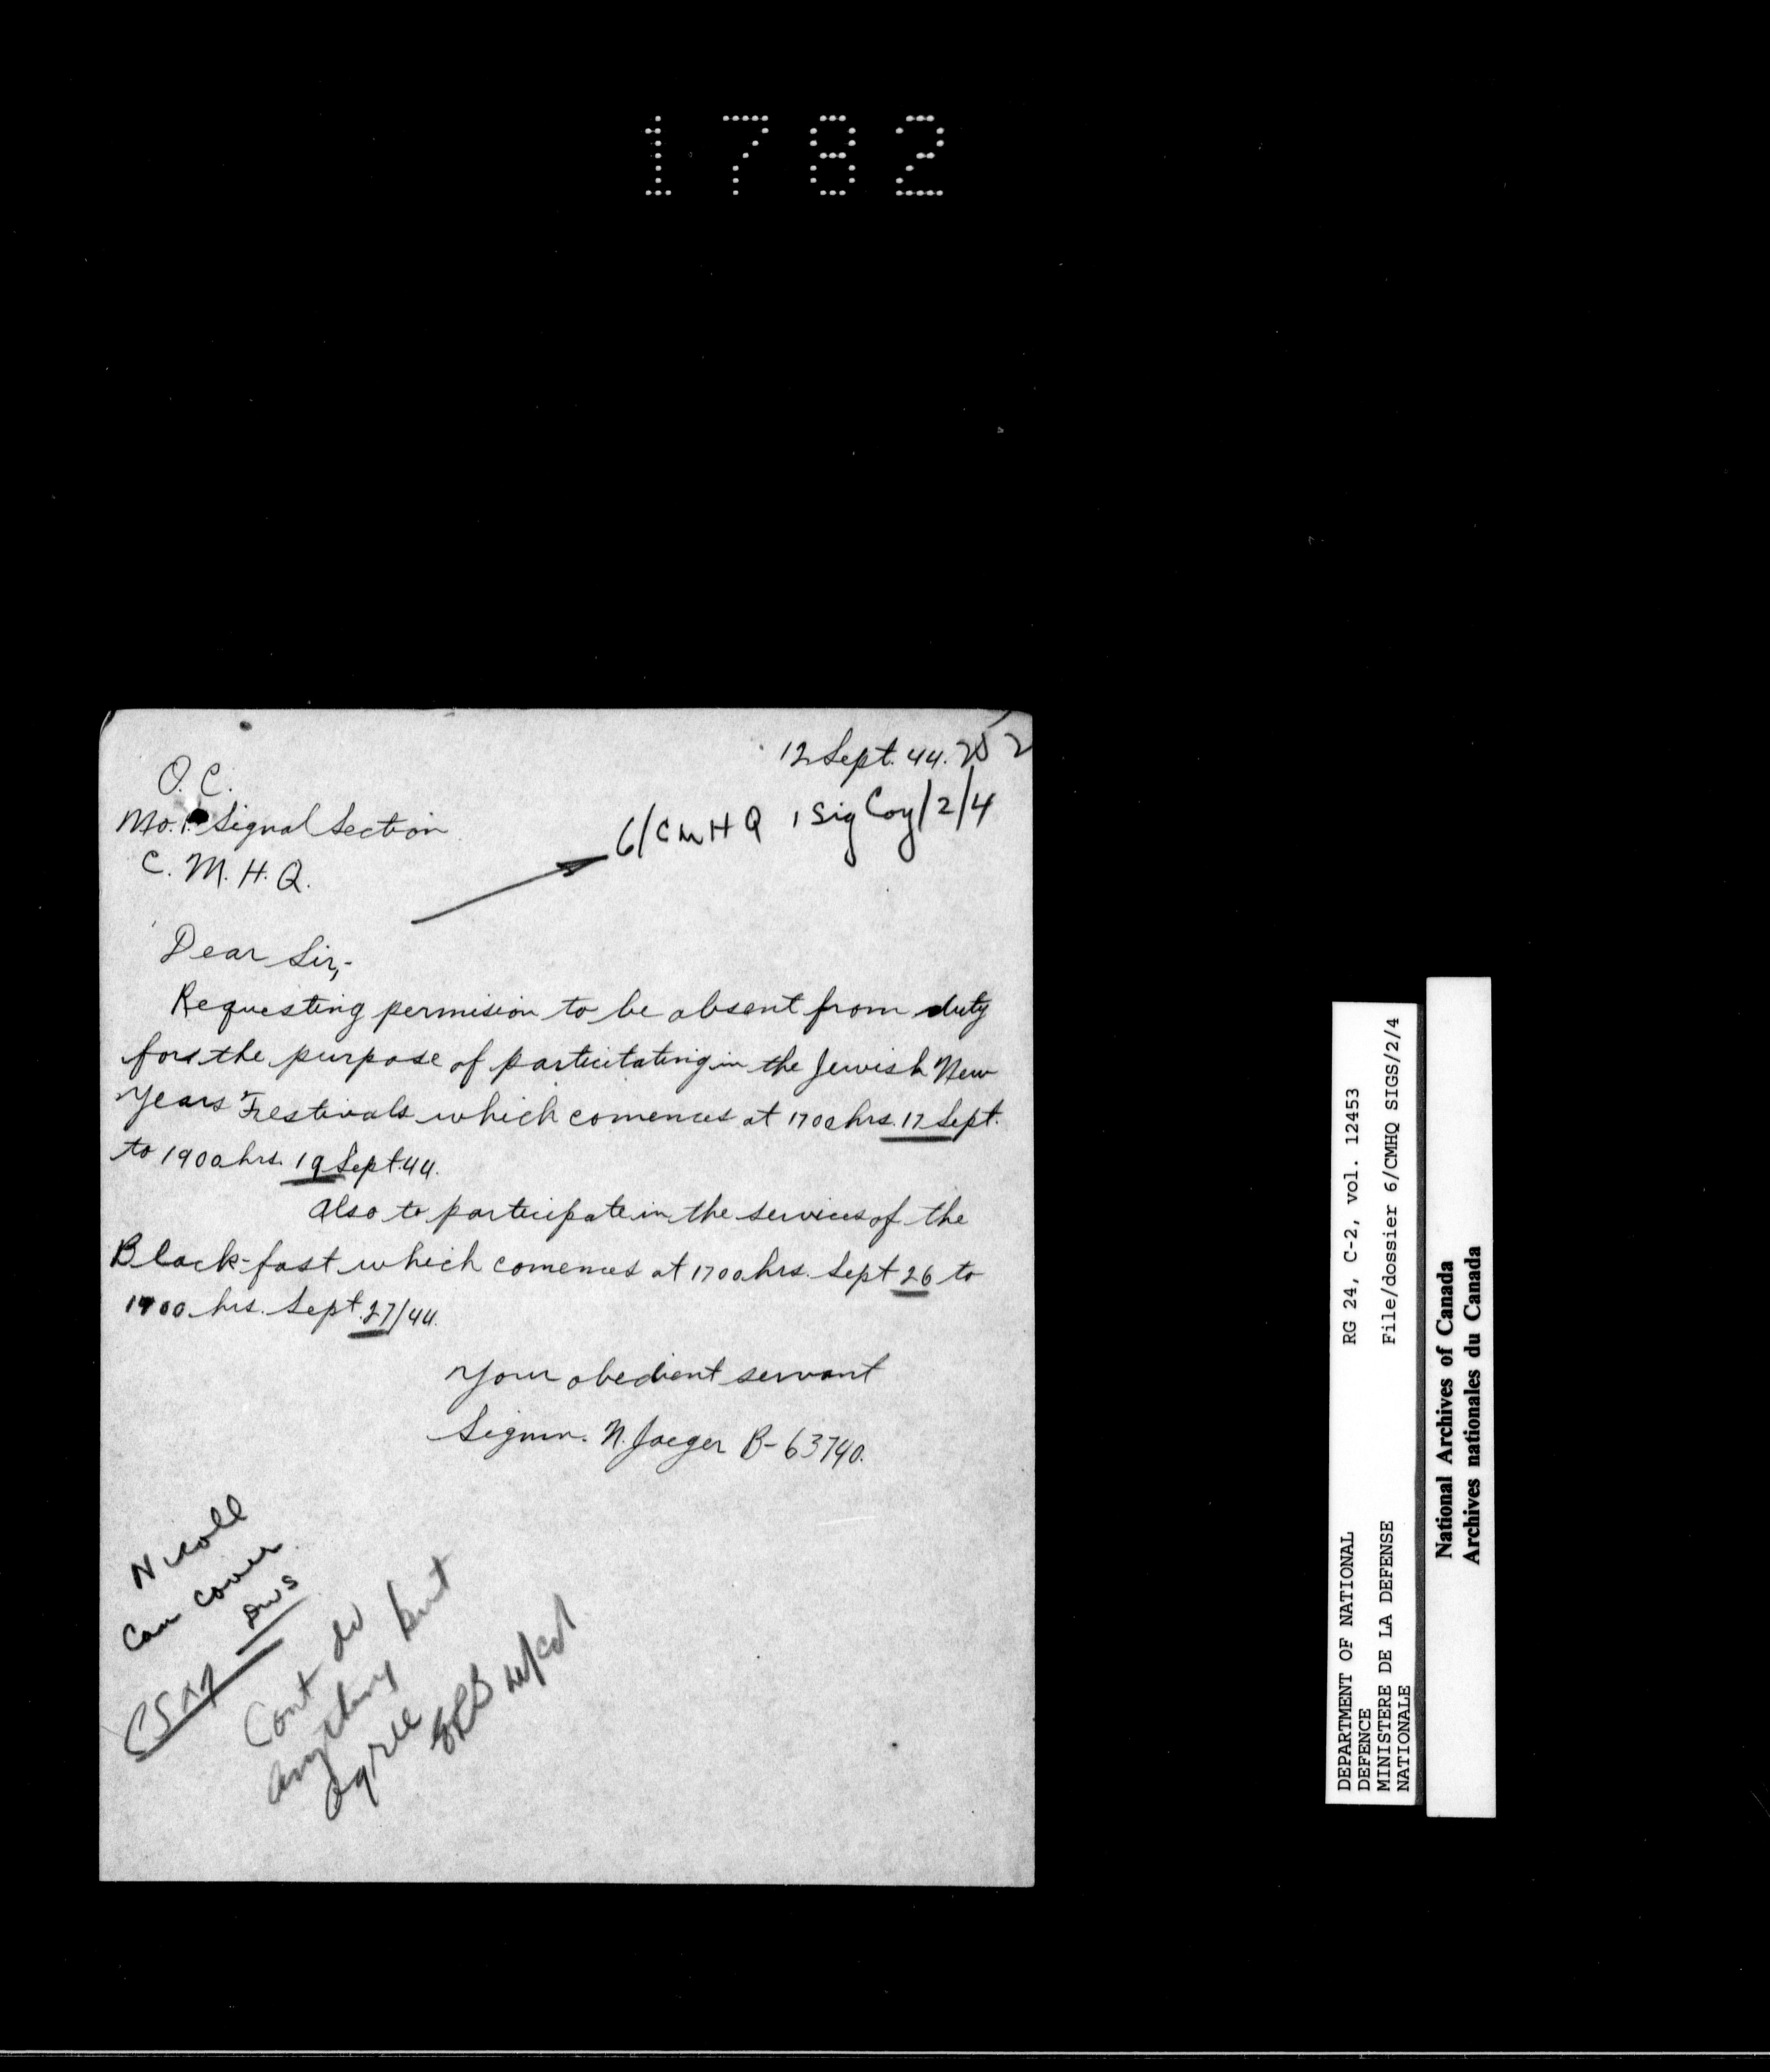 1782
12 Sept. 44.
O. C.
No. 1 Signal Section
C. M. H. Q.
6/CMHQ 1 Sig Coy/2/4
Dear Sir,-
Requesting permision to be absent from duty
for the purpose of particitating in the Jewish New
Years Festivals which comences at 1700 hrs. 17 Sept.
to 1900 hrs. 19 Sept. 44.
Also to participate in the services of the
Black-fast which comences at 1700 hrs. Sept 26 to
1900 hrs. Sept. 27/44.
Your obedient servant
Signmn. N. Jaeger B-63740.
Nicoll
can cover
CSM
Cant do
anything but
agree
RG 24, C-2, vol. 12453
File/dossier 6/CMHQ SIGS/2/4
DEPARTMENT OF NATIONAL
DEFENCE
MINISTERE DE LA DEFENSE
NATIONALE
National Archives of Canada
Archives nationales du Canada